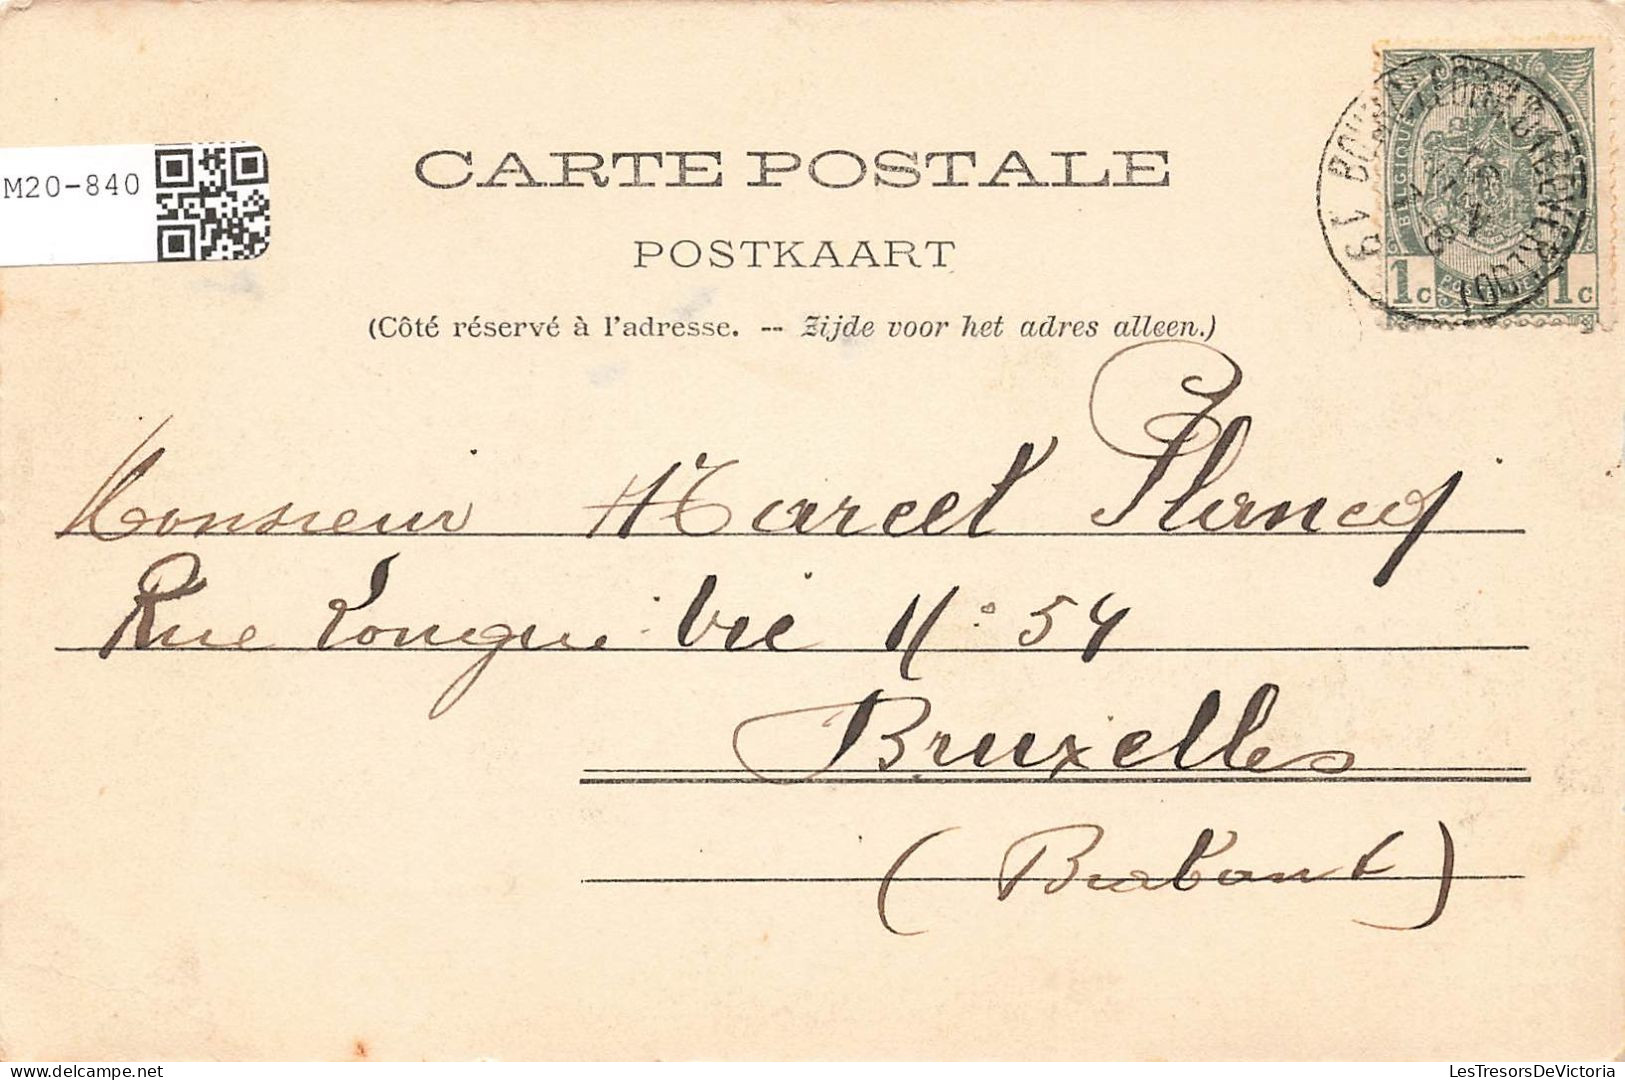 M20-840
CARTE POSTALE
POSTKAART
(Côté réservé à l'adresse. -- Zijde voor het adres alleen.)
BELGIQUE
1c 1c
Monsieur Marcel Plancq
Rue Longue Vie N° 54
Bruxelles
(Brabant)
delcampe.net
LesTresorsDeVictoria